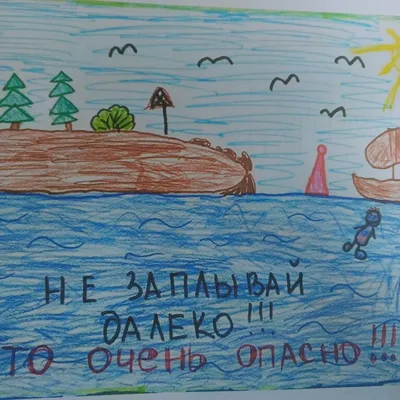 НЕ ЗАПЛЫВАЙ
ДАЛЕКО!!!
ТО ОЧЕНЬ ОПАСНО!!!